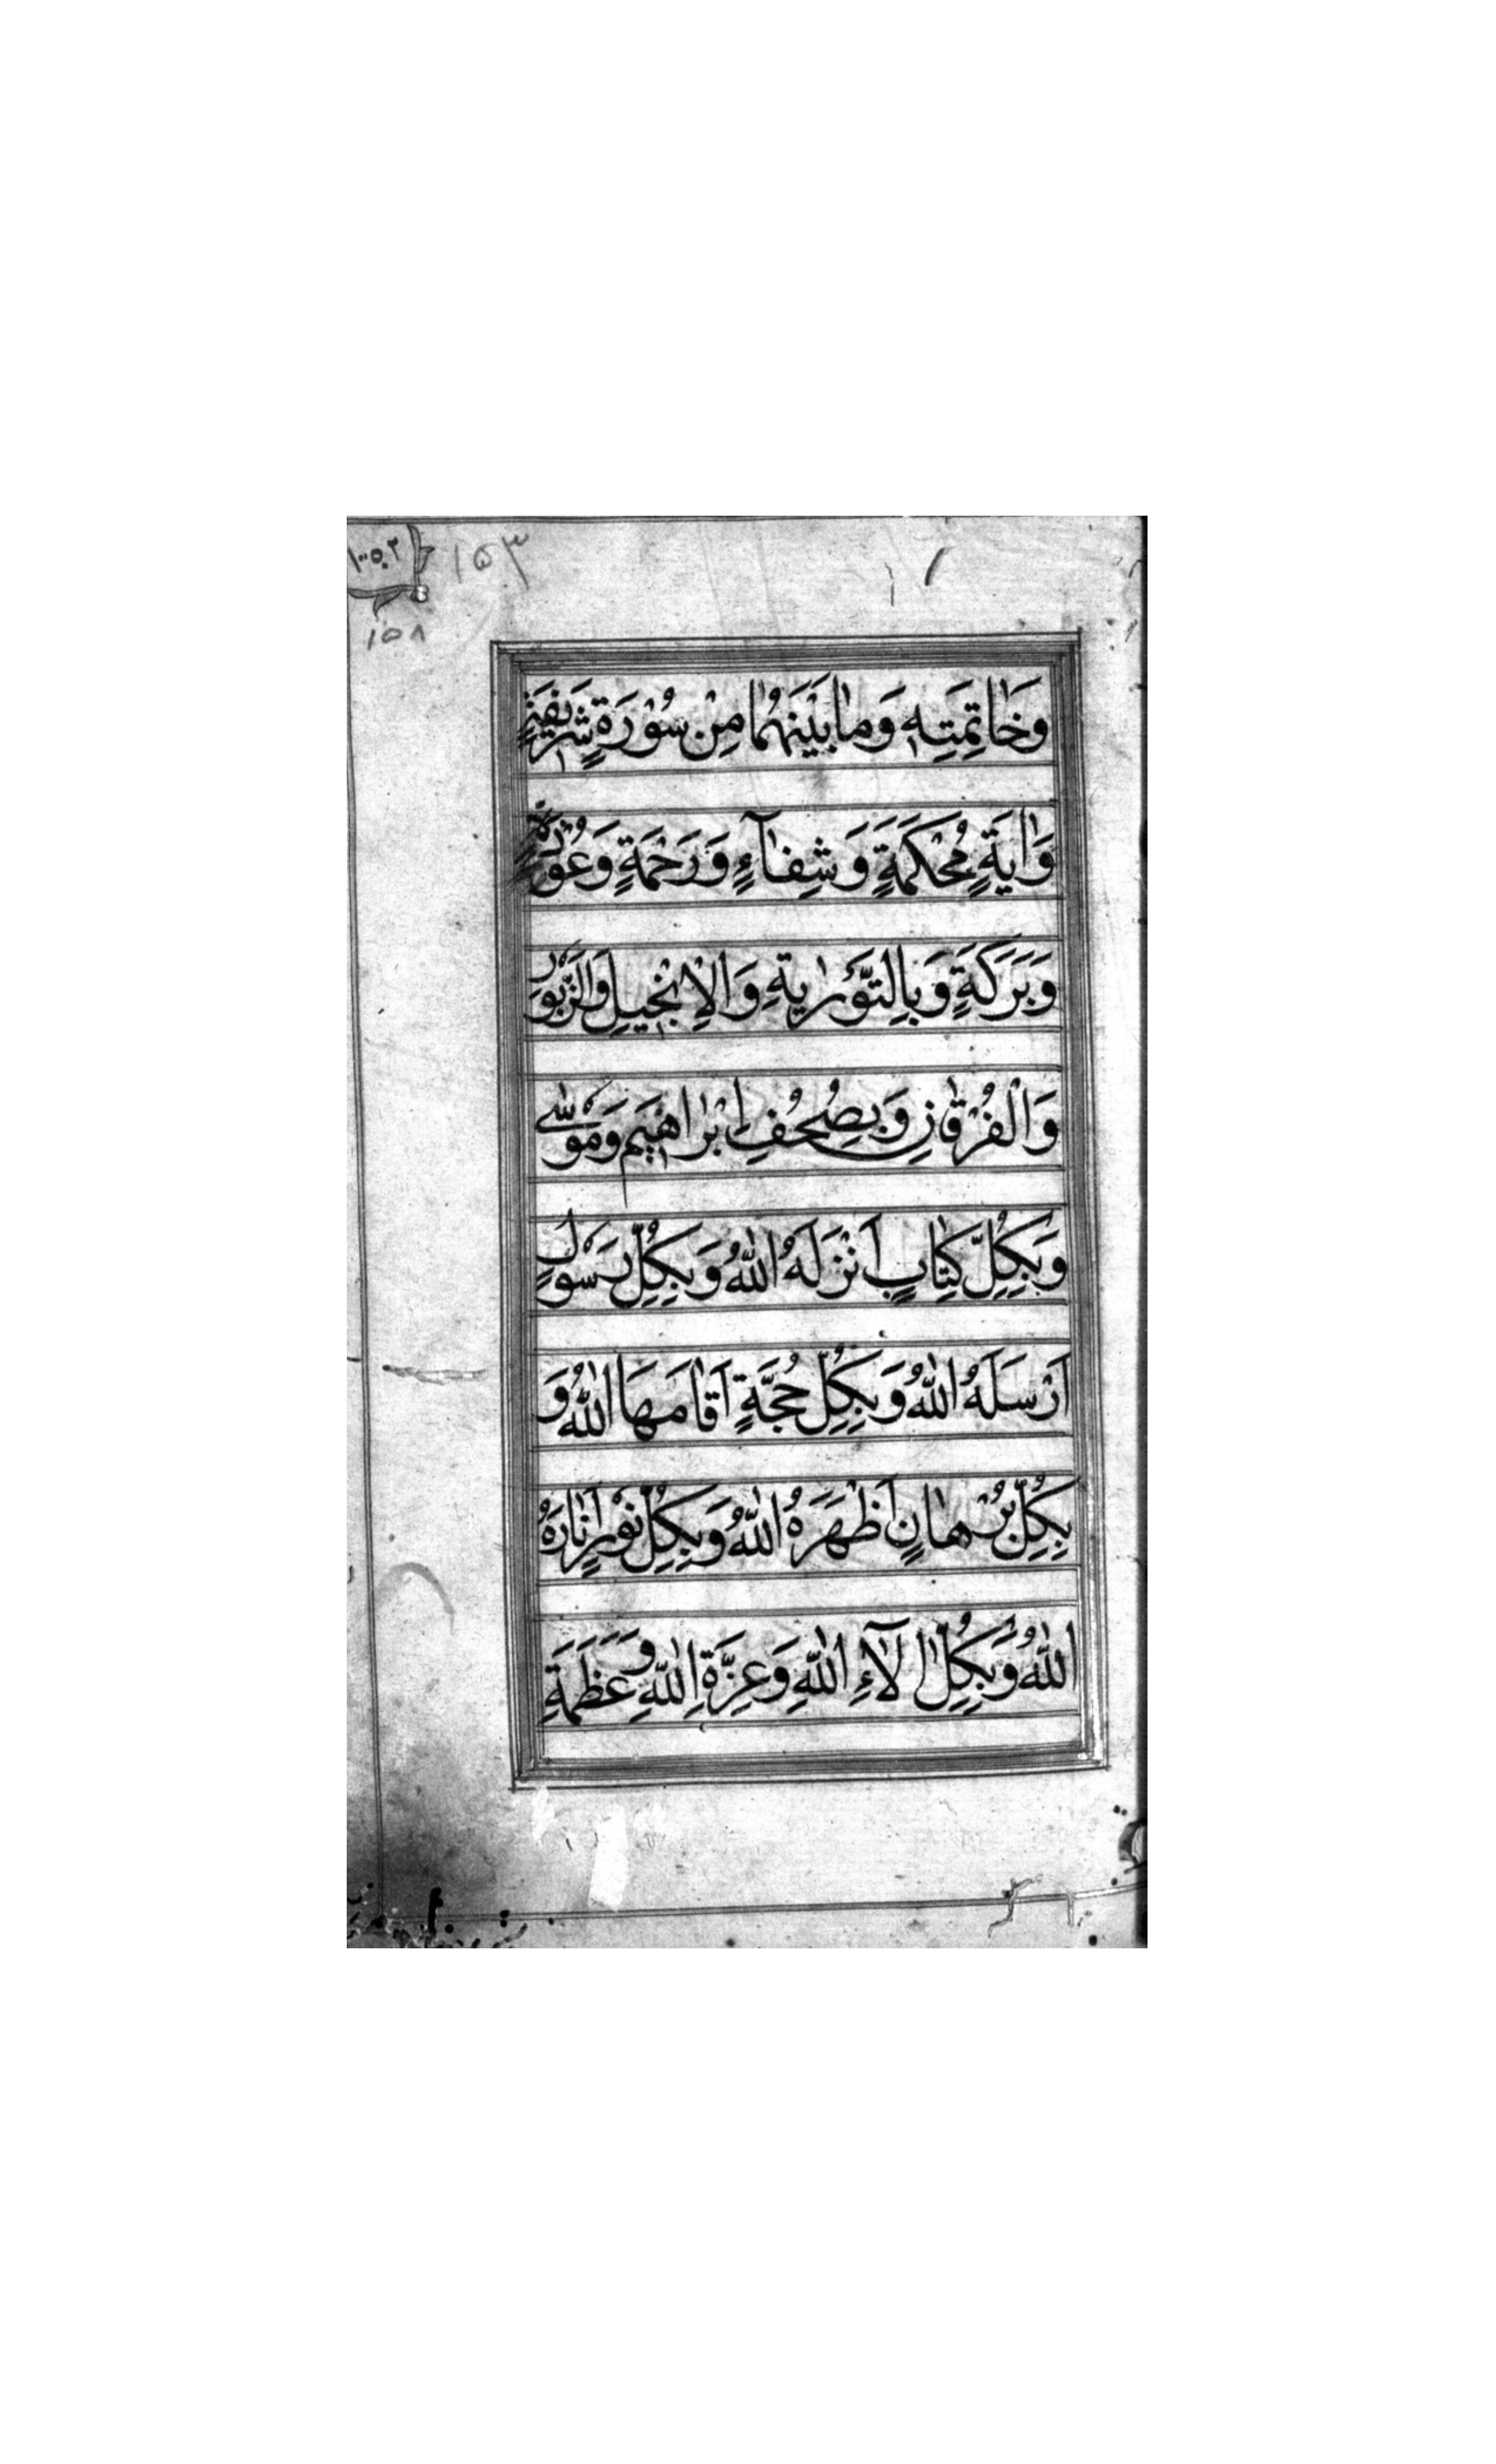 ١٠٠٥٠٢
١٥٣
١٥٨
وَخَاتِمَتِهِ وَمَا بَيْنَهُمَا مِنْ سُوْرَةٍ شَرِيفَةٍ
وَاٰيَةٍ مُحْكَمَةٍ وَشِفَآءٍ وَرَحْمَةٍ وَعُوْذَةٍ
وَبَرَكَةٍ وَبِالتَّوْرٰيةِ وَالْاِنْجِيلِ وَالزَّبُورِ
وَالْفُرْقَانِ وَبِصُحُفِ اِبْرَاهِيْمَ وَمُوْسٰى
وَبِكُلِّ كِتَابٍ اَنْزَلَهُ اللّٰهُ وَبِكُلِّ رَسُوْلٍ
اَرْسَلَهُ اللّٰهُ وَبِكُلِّ حُجَّةٍ اَقَامَهَا اللّٰهُ وَ
بِكُلِّ بُرْهَانٍ اَظْهَرَهُ اللّٰهُ وَبِكُلِّ نُوْرٍ اَنَارَهُ
اللّٰهُ وَبِكُلِّ اٰلَآءِ اللّٰهِ وَعِزَّةِ اللّٰهِ وَعَظَمَةِ